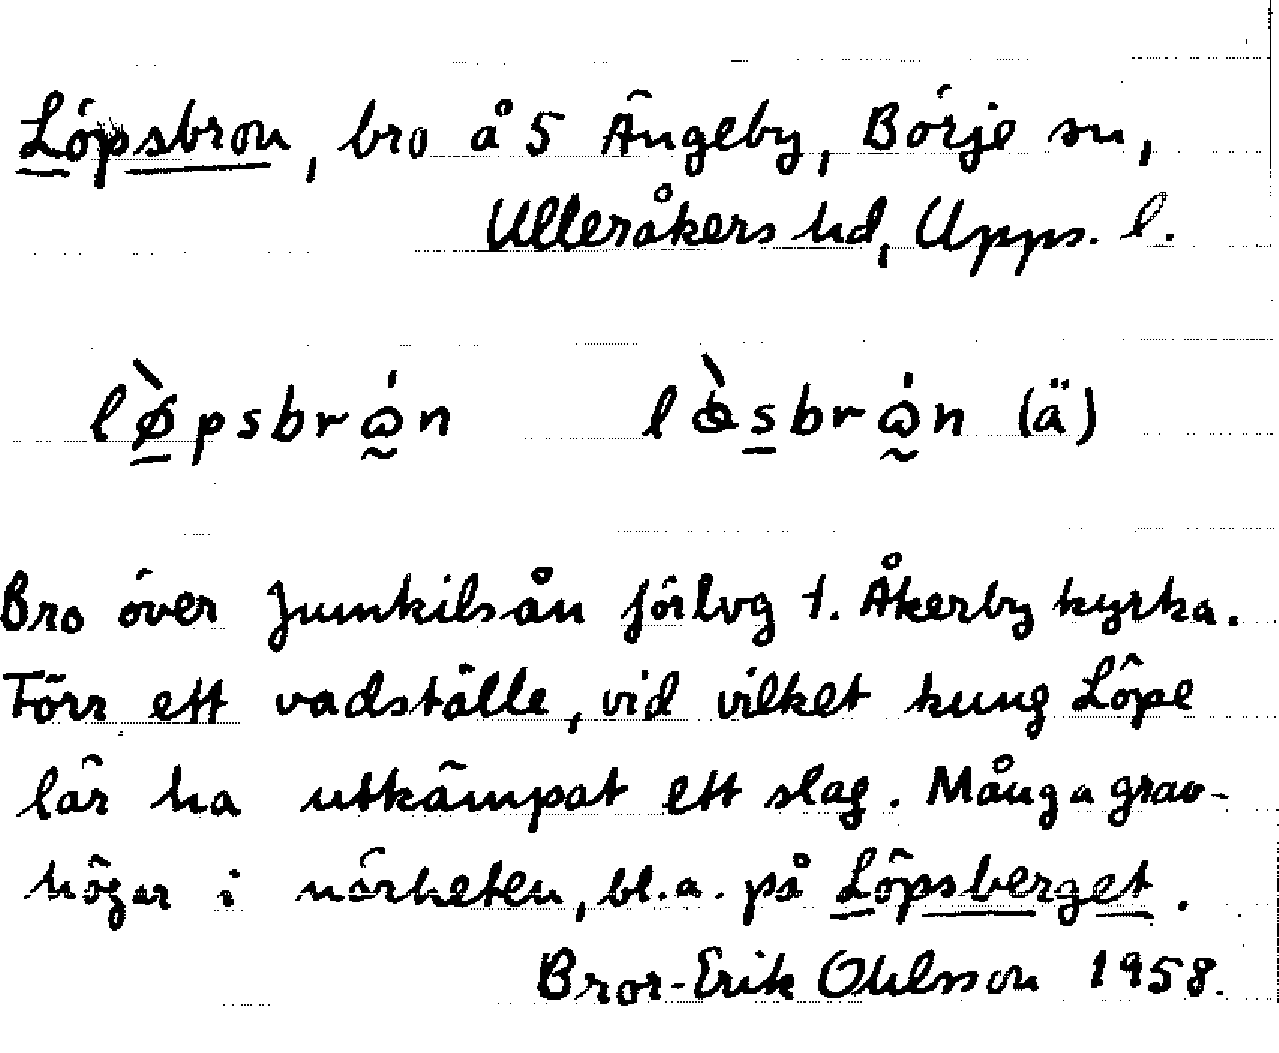 Löpsbron, bro å 5 Ängeby, Börje sn,
Ulleråkers hd, Upps. l.
lø̀psbrón lòsbrón (ä)
Bro över Jumkilsån förlvg t. Åkerby kyrka.
Förr ett vadställe, vid vilket kung Löpe
lär ha utkämpat ett slag. Många grav-
högar i närheten, bl.a. på Löpsberget.
Bror-Erik Ohlsson 1958.